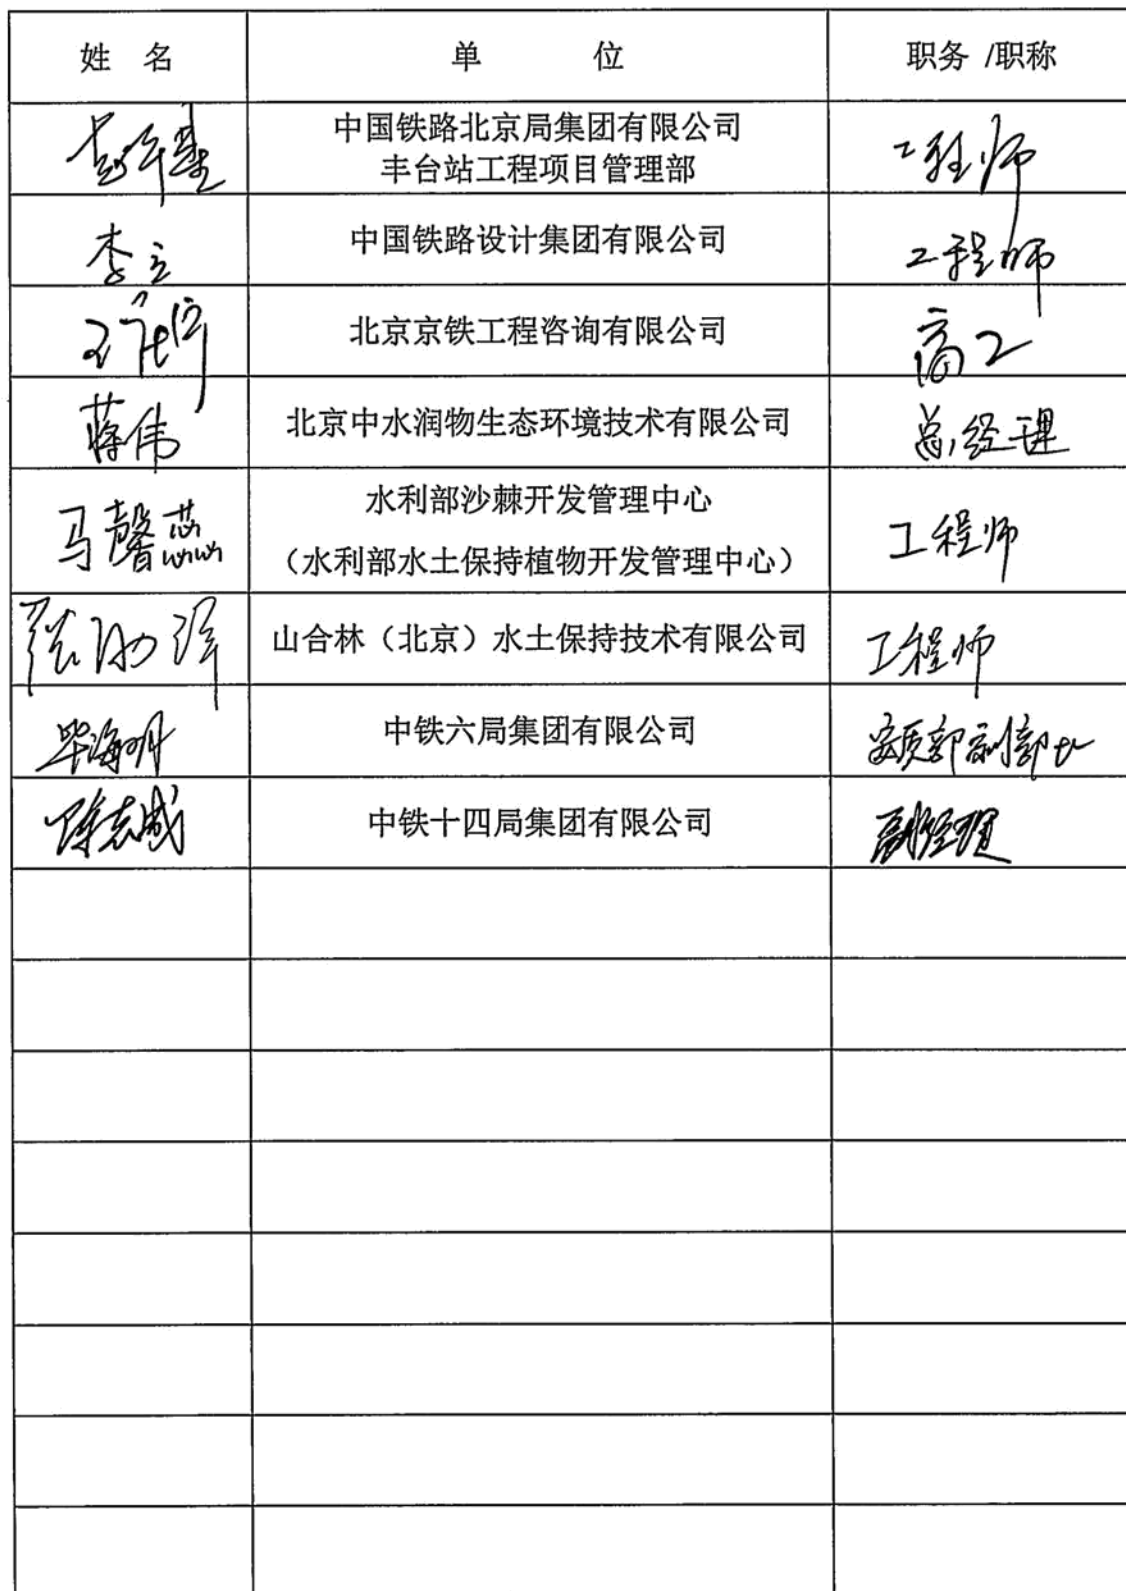 姓 名 单 位 职务 /职称
中国铁路北京局集团有限公司
丰台站工程项目管理部
工程师
李立 中国铁路设计集团有限公司 工程师
北京京铁工程咨询有限公司 高工
蒋伟 北京中水润物生态环境技术有限公司 总经理
水利部沙棘开发管理中心
马馨蕊 工程师
(水利部水土保持植物开发管理中心)
山合林(北京)水土保持技术有限公司 工程师
毕海明 中铁六局集团有限公司 安质部副部长
陈志成 中铁十四局集团有限公司 副经理